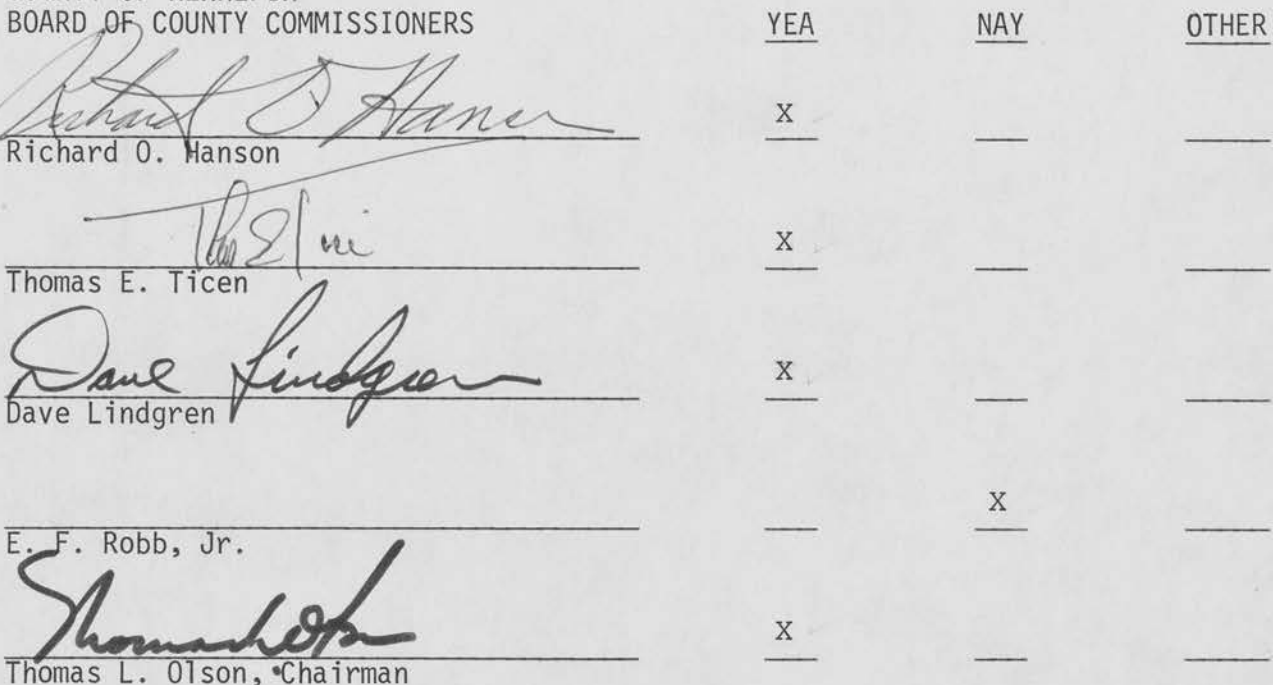 BOARD OF COUNTY COMMISSIONERS YEA NAY OTHER
Richard O Hanson X
Richard O. Hanson
X
Thomas E. Ticen
Dave Lindgren X
Dave Lindgren
X
E. F. Robb, Jr.
Thomas L Olson X
Thomas L. Olson, Chairman